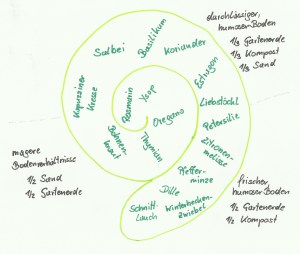 durchlässiger,
humoser Boden
⅓ Gartenerde
⅓ Kompost
⅓ Sand
Salbei
Basilikum
Koriander
Estragon
Kapuziner
Kresse
Rosmarin
Ysop
Oregano
Liebstöckl
Petersilie
Bohnen-
kraut
Thymian
Zitronen-
melisse
magere
Bodenverhältnisse
½ Sand
½ Gartenerde
Pfeffer-
minze
Dille
Schnitt-
lauch
Winterhecken-
zwiebel
frischer,
humoser Boden
½ Gartenerde
½ Kompost